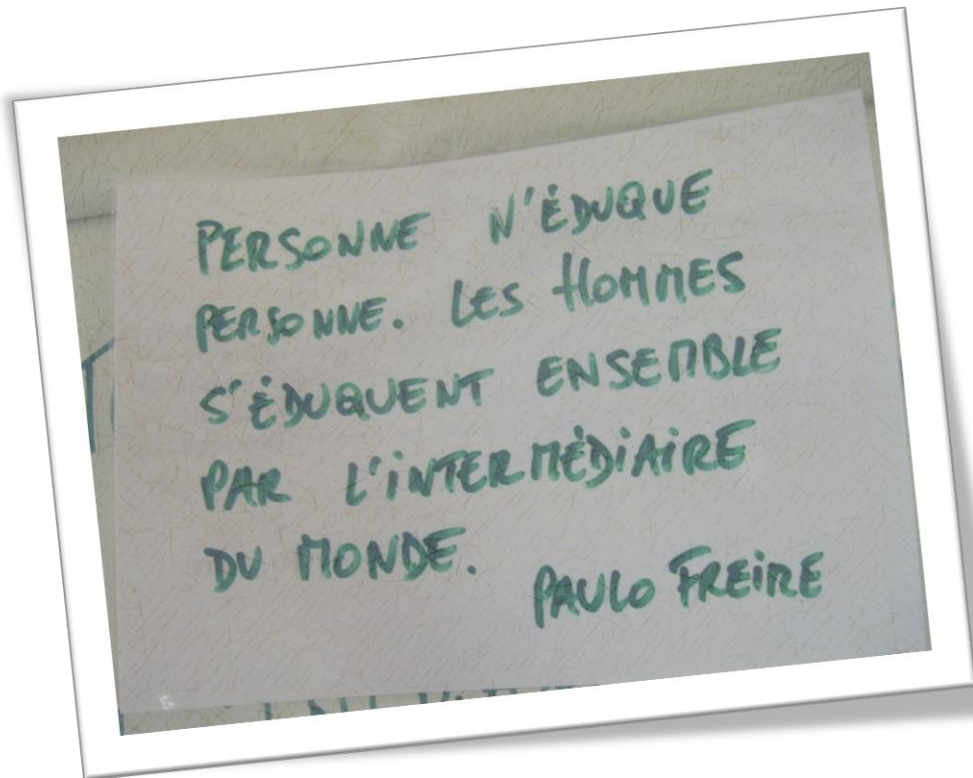 PERSONNE N'ÉDUQUE
PERSONNE. LES HOMMES
S'ÉDUQUENT ENSEMBLE
PAR L'INTERMÉDIAIRE
DU MONDE.
PAULO FREIRE